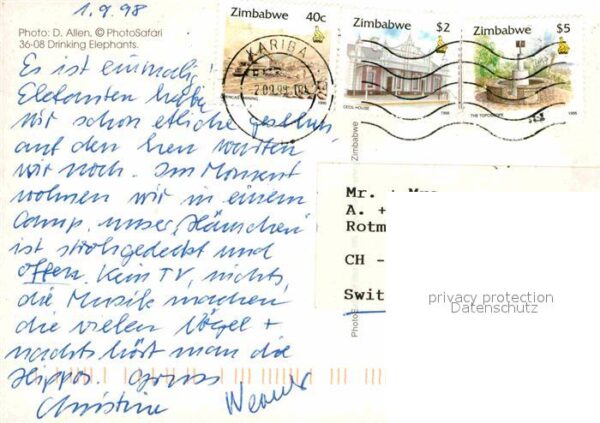 1.9.98
Photo: D. Allen, © PhotoSafari
36-08 Drinking Elephants.
Zimbabwe 40c
Zimbabwe $2
CECIL HOUSE 1995
Zimbabwe $5
THE TOPOSCOPE 1995
KARIBA
Es ist einmalig!
Elefanten
wir schon etliche gesehen,
auf den Leu warten
wir noch. Im Moment
wohnen wir in einem
Camp, unser "Häuschen"
ist strohgedeckt und
offen. Kein TV, nichts,
die Musik machen
die vielen Vögel +
nachts hört man die
Hippos. Gruss
Christine Werner
Mr. +
A. +
Rotm
CH -
Swit
privacy protection
Datenschutz
Zimbabwe